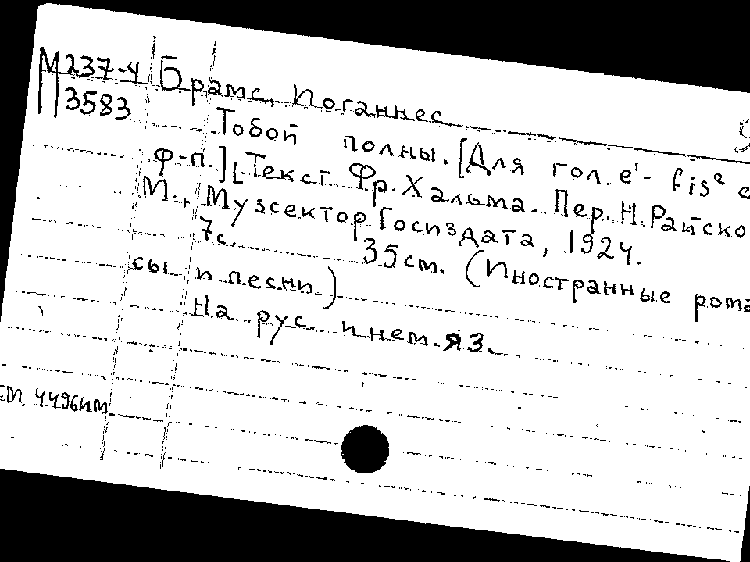 М237-4 Брамс, Иоганнес
3583
Тобой полны. [Для гол. e¹- fis² с
ф-п.] [Текст Фр. Хальма. Пер. Н. Райско
М., Музсектор Госиздата, 1924.
7с. 35 см. (Иностранные рома
сы и песни)
На рус. и нем. яз.